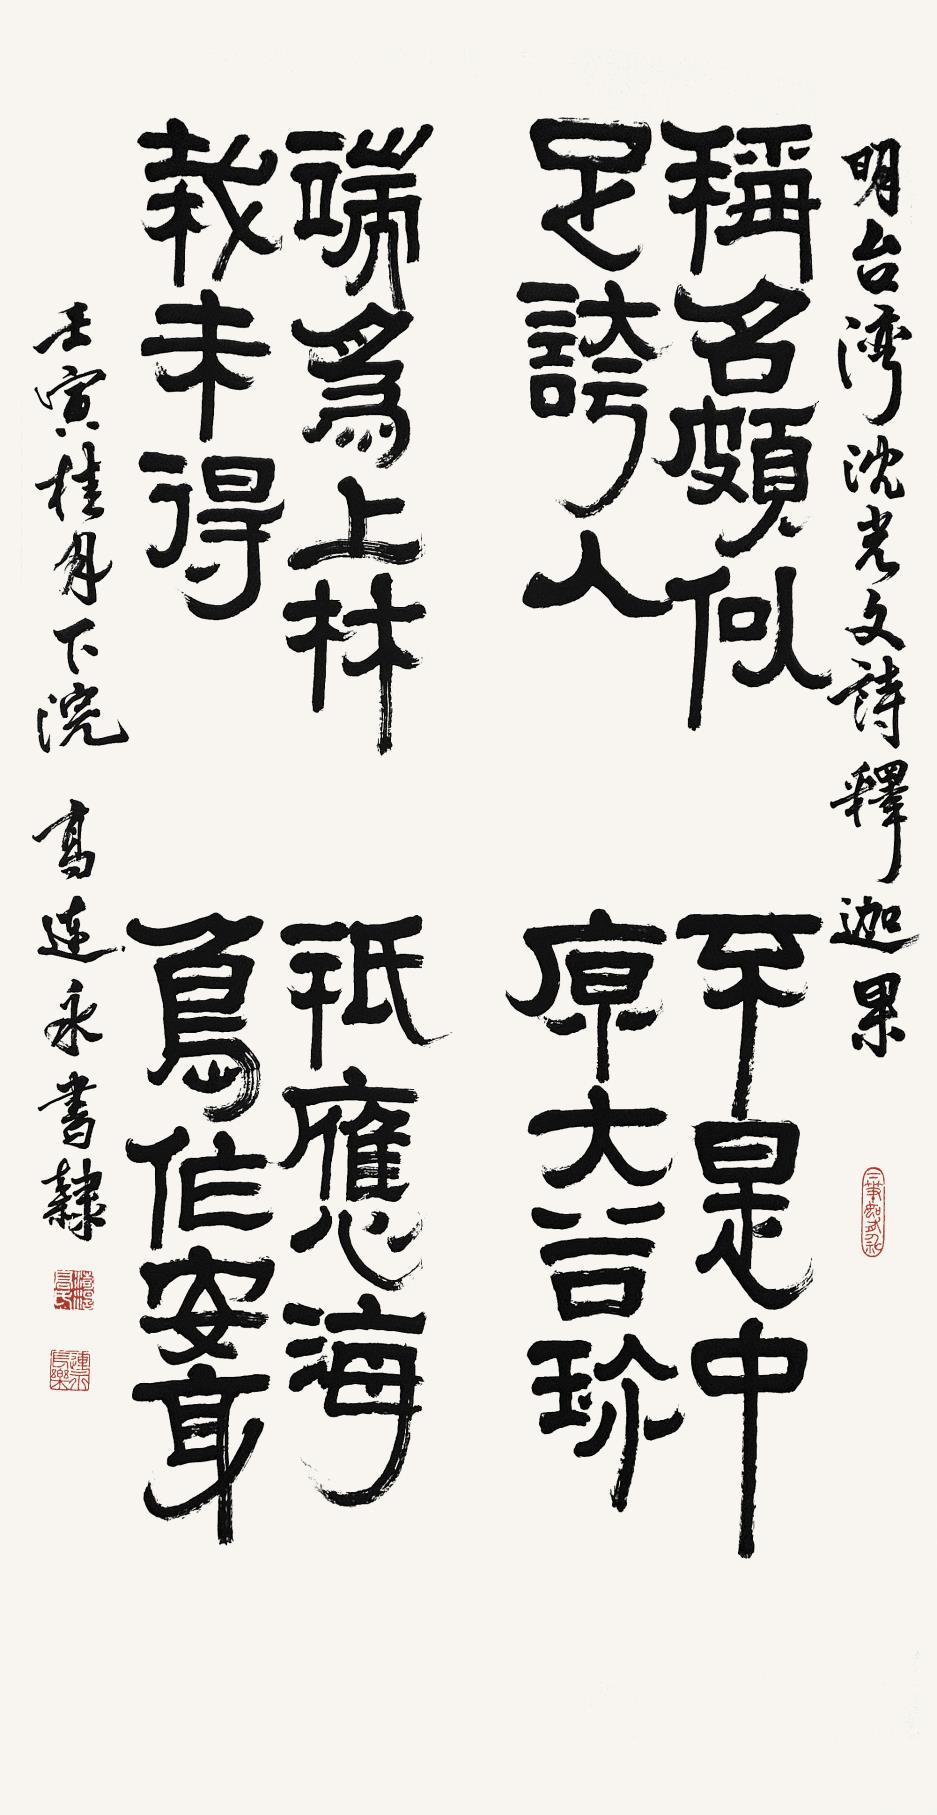 明台湾沈光文詩釋迦果
稱名頗似
足誇人
不是中
原大谷珍
端爲上林
栽未得
祇應海
島作安身
壬寅桂月下浣 高連永書隸